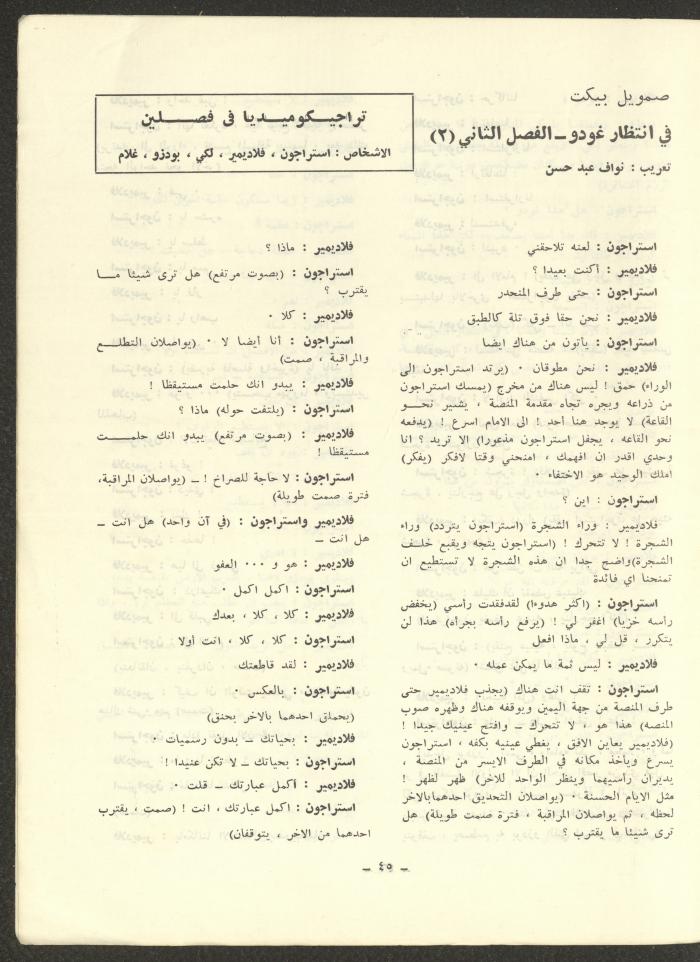 صمويل بيكت
في انتظار غودو ـ الفصل الثاني (٢)
تعريب : نواف عبد حسن
تراجيكوميديا في فصلين
الاشخاص : استراجون ، فلاديمير ، لكي ، بودزو ، غلام
استراجون : لعنه تلاحقني
فلاديمير : أكنت بعيدا ؟
استراجون : حتى طرف المنحدر
فلاديمير : نحن حقا فوق تلة كالطبق
استراجون : يأتون من هناك ايضا
فلاديمير : نحن مطوقان ٠ (يرتد استراجون الى
الوراء) حمق ! ليس هناك من مخرج (يمسك استراجون
من ذراعه ويجره تجاه مقدمة المنصة ، يشير نحو
القاعة) لا يوجد هنا أحد ! الى الامام اسرع ! (يدفعه
نحو القاعه ، يجفل استراجون مذعورا) الا تريد ؟ انا
وحدي اقدر ان افهمك ، امنحني وقتا لافكر (يفكر)
املك الوحيد هو الاختفاء ٠
استراجون : اين ؟
فلاديمير : وراء الشجرة (استراجون يتردد) وراء
الشجرة ! لا تتحرك ! (استراجون يتجه ويقبع خلف
الشجرة) واضح جدا ان هذه الشجرة لا تستطيع ان
تمنحنا اي فائدة
استراجون : (اكثر هدوءا) لقدفقدت رأسي (يخفض
رأسه خزيا) اغفر لي ! (يرفع رأسه بجرأه) هذا لن
يتكرر ، قل لي ، ماذا افعل
فلاديمير : ليس ثمة ما يمكن عمله ٠
استراجون : تقف انت هناك (يجذب فلاديمير حتى
طرف المنصة من جهة اليمين ويوقفه هناك وظهره صوب
المنصه) هذا هو ، لا تتحرك ـ وافتح عينيك جيدا !
(فلاديمير يعاين الافق ، يغطي عينيه بكفه ، استراجون
يسرع ويأخذ مكانه في الطرف الايسر من المنصة ،
يديران رأسيهما وينظر الواحد للاخر) ظهر لظهر !
مثل الايام الحسنة ٠ (يواصلان التحديق احدهمابالاخر
لحظه ، ثم يواصلان المراقبة ، فترة صمت طويلة) هل
ترى شيئا ما يقترب ؟
فلاديمير : ماذا ؟
استراجون : (بصوت مرتفع) هل ترى شيئا ما
يقترب ؟
فلاديمير : كلا ٠
استراجون : أنا أيضا لا ٠ (يواصلان التطلع
والمراقبة ، صمت)
فلاديمير : يبدو انك حلمت مستيقظا !
استراجون : (يلتفت حوله) ماذا ؟
فلاديمير : (بصوت مرتفع) يبدو انك حلمت
مستيقظا !
استراجون : لا حاجة للصراخ ! ـ (يواصلان المراقبة،
فترة صمت طويلة)
فلاديمير واستراجون : (في آن واحد) هل انت ـ
هل انت ـ
فلاديمير : هو و ٠٠٠ العفو
استراجون : اكمل اكمل ٠
فلاديمير : كلا ، كلا ، بعدك
استراجون : كلا ، كلا ، انت أولا
فلاديمير : لقد قاطعتك
استراجون : بالعكس ٠
(يحملق احدهما بالاخر بحنق)
فلاديمير : بحياتك ـ بدون رسميات ٠
استراجون : بحياتك ـ لا تكن عنيدا !
فلاديمير : أكمل عبارتك ـ قلت ٠
استراجون : اكمل عبارتك ، انت ! (صمت ، يقترب
احدهما من الاخر ، يتوقفان)
ـ ٤٥ ـ